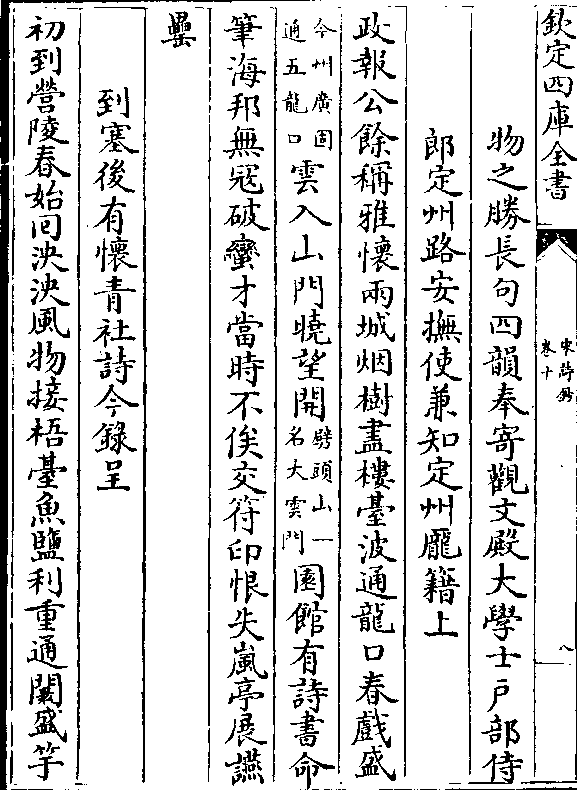 欽定四庫全書
宋詩鈔
卷十
八
物之勝長句四韻奉寄觀文殿大學士戸部侍
郎定州路安撫使兼知定州龐籍上
政報公餘稱雅懷兩城烟樹盡樓臺波通龍口春戲盛
今州廣固
通五龍口
雲入山門曉望開
劈頭山一
名大雲門
園館有詩書命
筆海邦無冦破蠻才當時不俟交符印恨失嵐亭展讌
罍
到塞後有懷青社詩今錄呈
初到營陵春始囘泱泱風物接梧臺魚鹽利重通闤盛竽